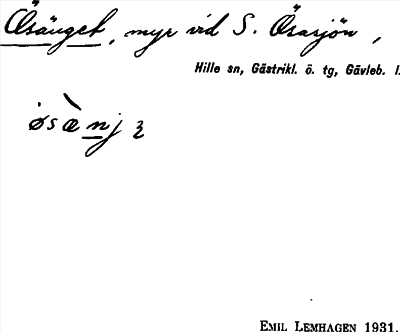 Ösänget, myr vid S. Ösarjön,
Hille sn, Gästrikl. ö. tg, Gävleb. l.
EMIL LEMHAGEN 1931.